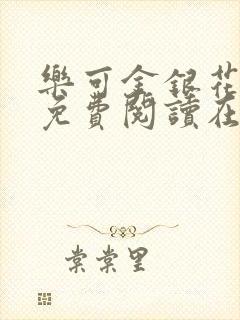 樂可金銀花
免費閱讀在
棠棠里